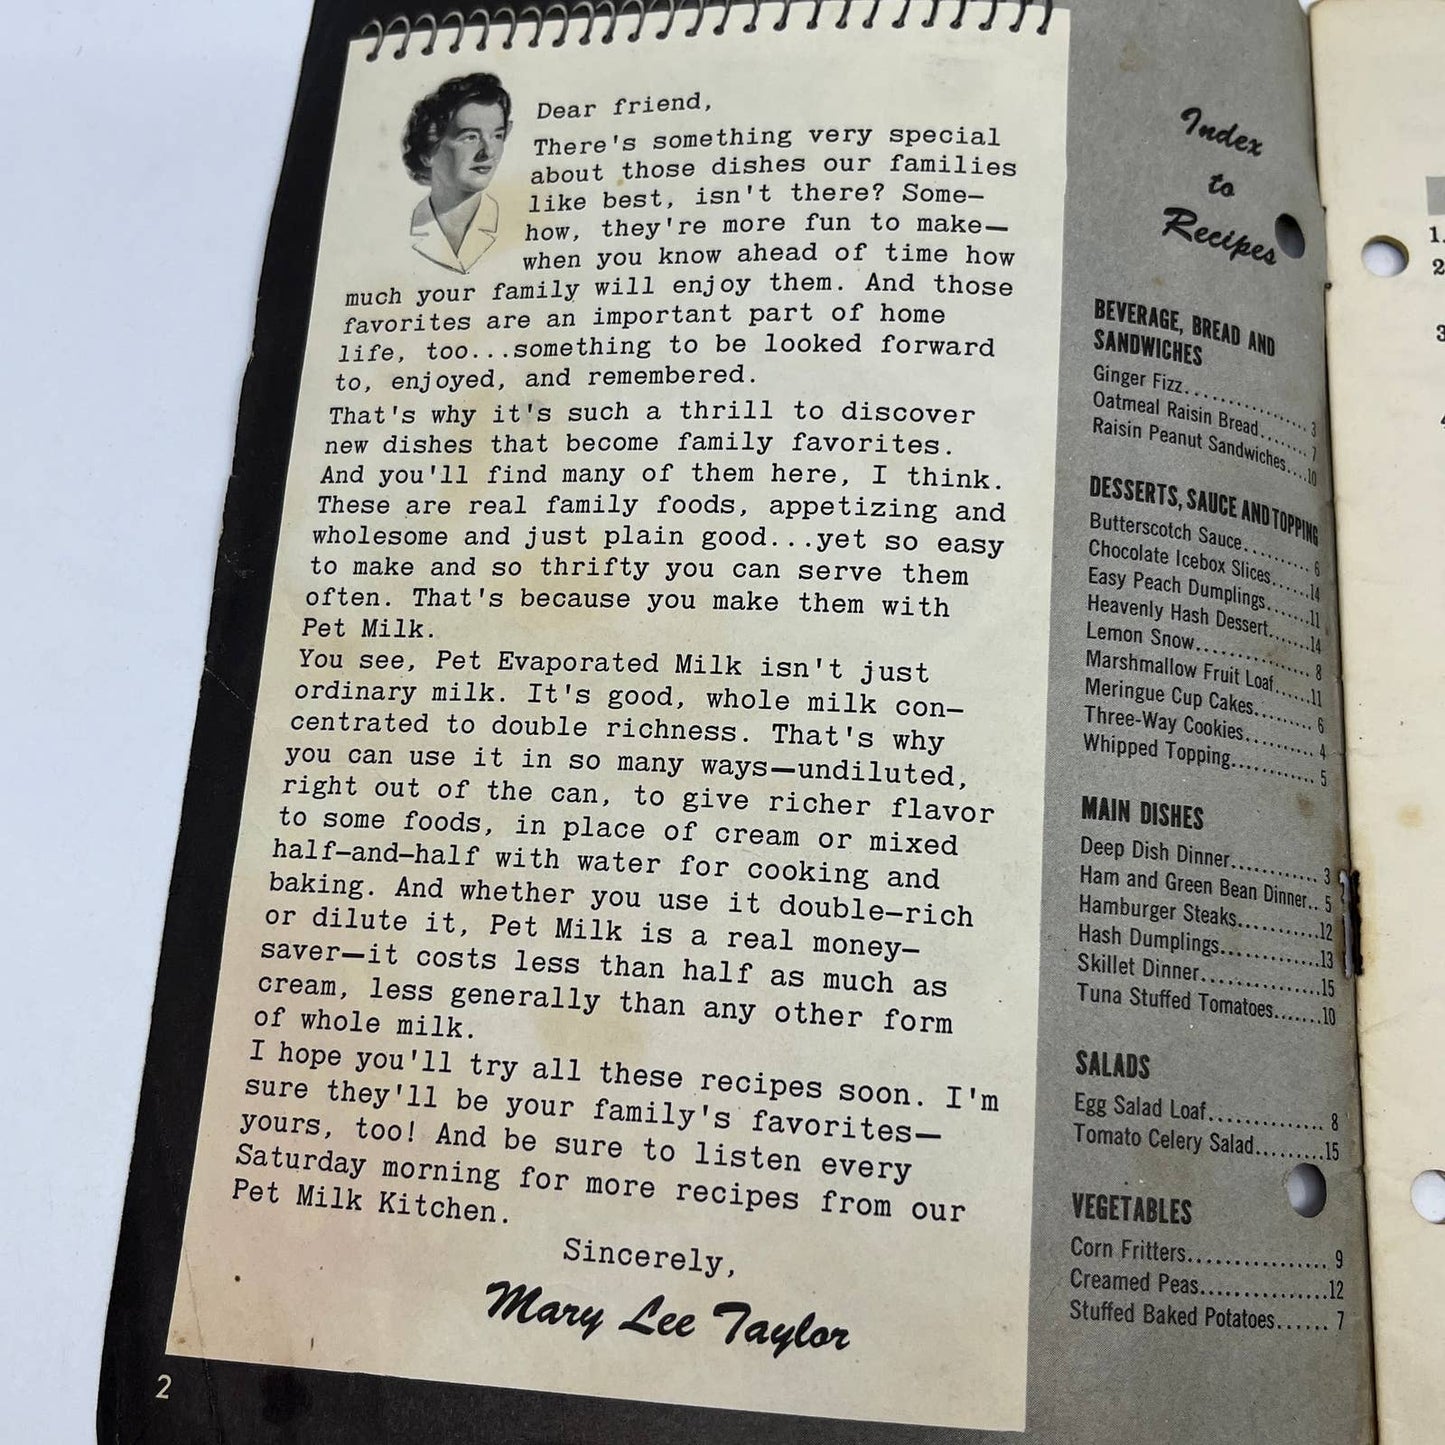 Dear friend,
There's something very special
about those dishes our families
like best, isn't there? Some—
how, they're more fun to make—
when you know ahead of time how
much your family will enjoy them. And those
favorites are an important part of home
life, too...something to be looked forward
to, enjoyed, and remembered.
That's why it's such a thrill to discover
new dishes that become family favorites.
And you'll find many of them here, I think.
These are real family foods, appetizing and
wholesome and just plain good...yet so easy
to make and so thrifty you can serve them
often. That's because you make them with
Pet Milk.
You see, Pet Evaporated Milk isn't just
ordinary milk. It's good, whole milk con—
centrated to double richness. That's why
you can use it in so many ways—undiluted,
right out of the can, to give richer flavor
to some foods, in place of cream or mixed
half—and—half with water for cooking and
baking. And whether you use it double—rich
or dilute it, Pet Milk is a real money—
saver—it costs less than half as much as
cream, less generally than any other form
of whole milk.
I hope you'll try all these recipes soon. I'm
sure they'll be your family's favorites—
yours, too! And be sure to listen every
Saturday morning for more recipes from our
Pet Milk Kitchen.
Sincerely,
Mary Lee Taylor
2
Index
to
Recipes
BEVERAGE, BREAD AND
SANDWICHES
Ginger Fizz.................. 3
Oatmeal Raisin Bread....... 7
Raisin Peanut Sandwiches...10
DESSERTS, SAUCE AND TOPPING
Butterscotch Sauce......... 6
Chocolate Icebox Slices......14
Easy Peach Dumplings.......11
Heavenly Hash Dessert......14
Lemon Snow................ 8
Marshmallow Fruit Loaf.....11
Meringue Cup Cakes......... 6
Three-Way Cookies.......... 4
Whipped Topping............ 5
MAIN DISHES
Deep Dish Dinner............ 3
Ham and Green Bean Dinner.. 5
Hamburger Steaks............12
Hash Dumplings..............13
Skillet Dinner.................15
Tuna Stuffed Tomatoes.......10
SALADS
Egg Salad Loaf............... 8
Tomato Celery Salad.........15
VEGETABLES
Corn Fritters................. 9
Creamed Peas................12
Stuffed Baked Potatoes...... 7
1.
2
3
4